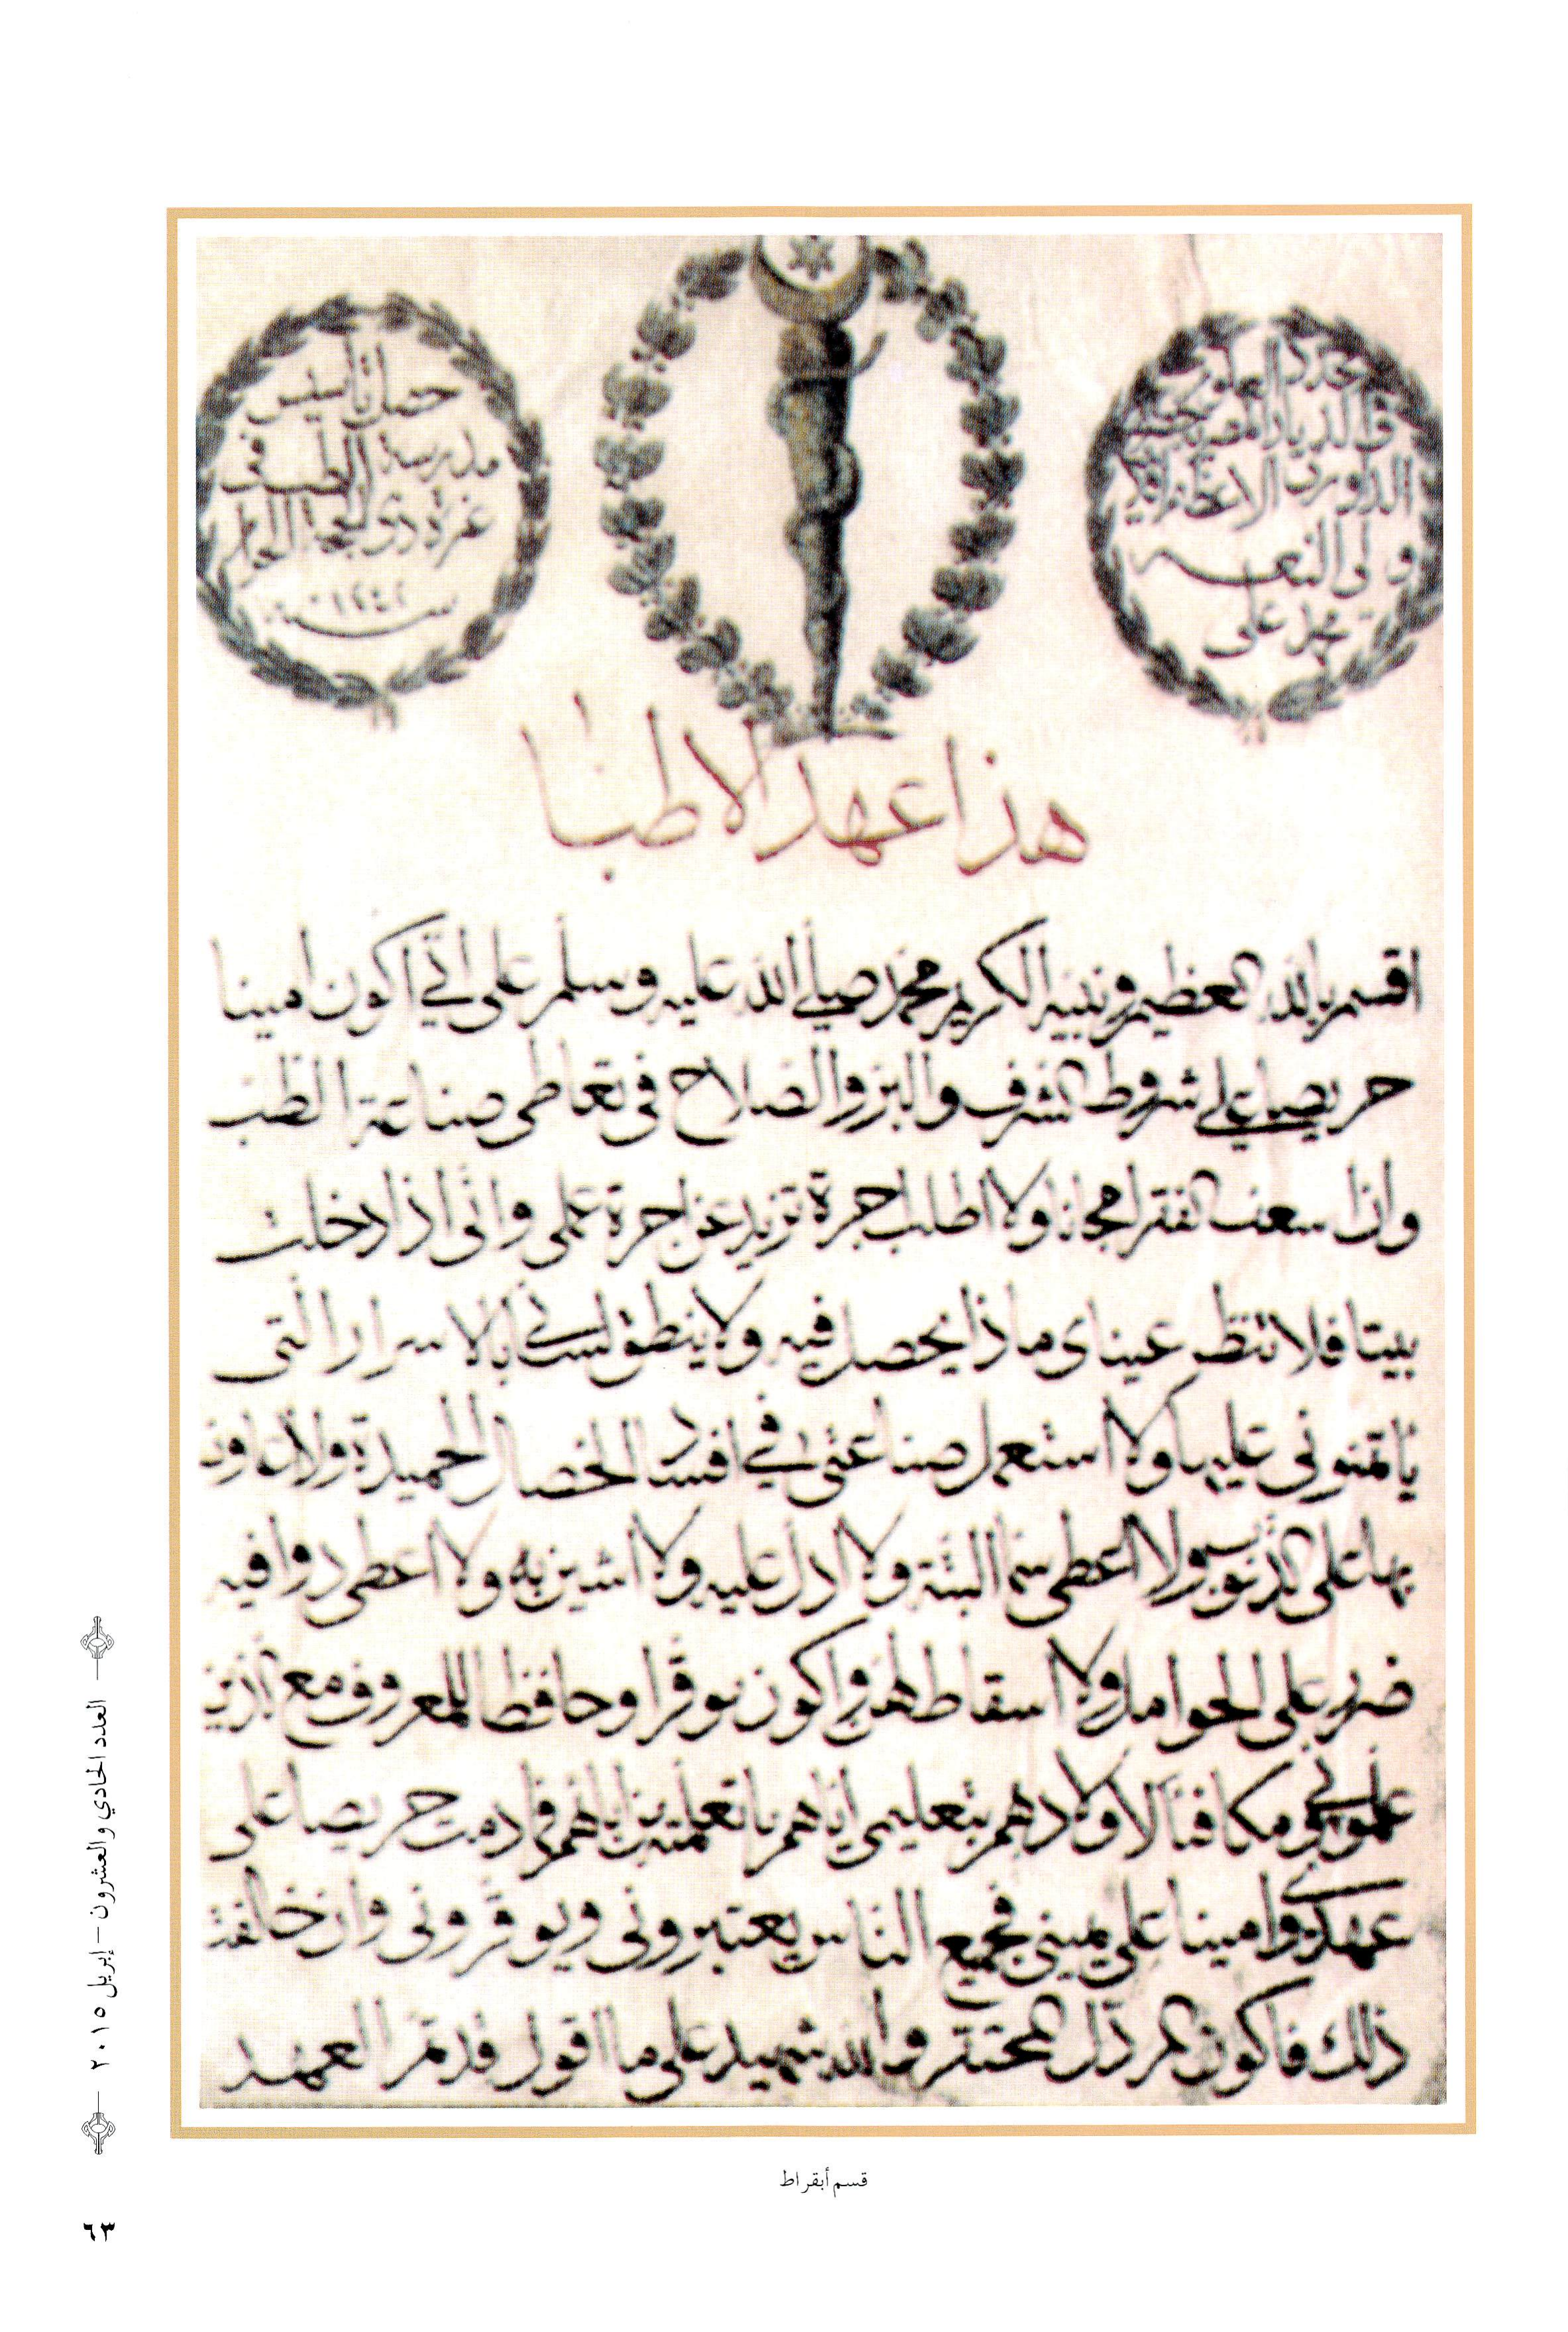 جدد العلوم
في الديار المصرية
الداورى الاعظم
ولى النعم
محمد على
حصل تأسيس
مدرسة الطب فى
غرة ذى الحجة الحرام
سنة ١٢٤٢
هذا عهد الاطبا
اقسم بالله العظيم ونبيه الكريم محمد صلى الله عليه وسلم على انّي اكون امينا
حريصا على شروط الشرف والبرّ والصّلاح فى تعاطى صناعة الطّب
وان اسعف الفقرا مجانا ولا اطلب اجرة تزيد عن اجرة عملى وانّى اذا دخلت
بيتا فلا تنظر عيناى ماذا يحصل فيه ولا ينطق لسانى بالاسرار التى
يأتمنونى عليها ولا استعمل صناعتى في افساد الخصال الحميدة ولا اعاون
بها على الذنوب ولا اعطى سما البتّة ولا ادل عليه ولا اشير به ولا اعطى دوا فيه
ضرر على الحوامل ولا اسقاطهنّ واكون موقرا وحافظا للمعروف مع الذين
علمونى ومكافئا لاولادهم بتعليمى ايّاهم ما تعلمته من ابائهم فما دمت حريصا على
عهدى وامينا على يمينى فجميع النّاس يعتبرونى ويوقرونى وان خالفت
ذلك فاكون المرذل المحتقر والله شهيد على ما اقول قد تمّ العهد
قسم أبقراط
العدد الحادي والعشرون – إبريل ٢٠١٥
٦٣